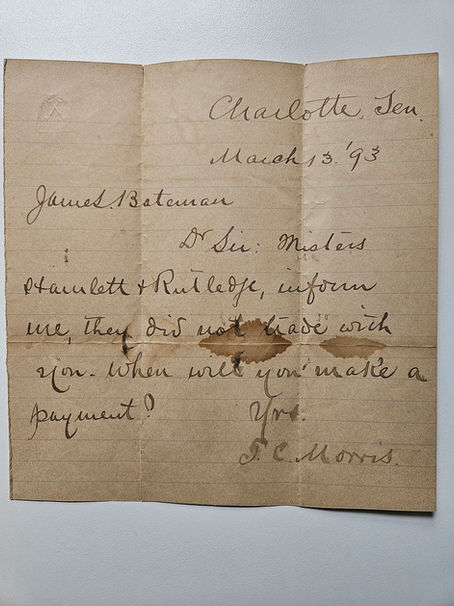 Charlotte, Ten.
March 13. '93
James. Bateman
Dr Sir: Misters
Hamlett & Rutledge, inform
me, they did not trade with
you. When will you make a
payment?
Yrs.
T. C. Morris.